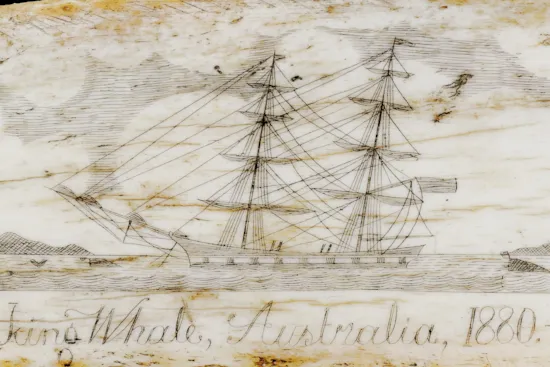 Whale, Australia, 1880.